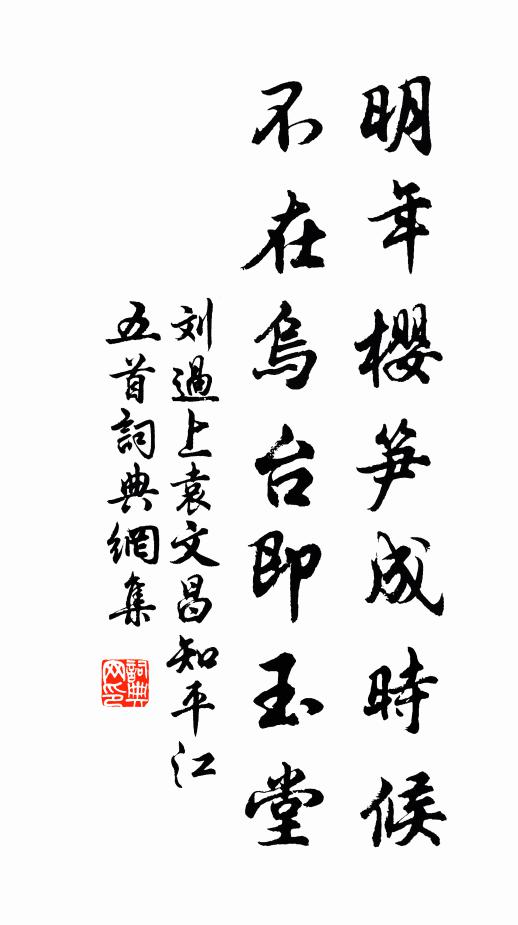 明年櫻笋成時候
不在烏台即玉堂
刘過上袁文昌知平江
五首詞典網集
詞典网印